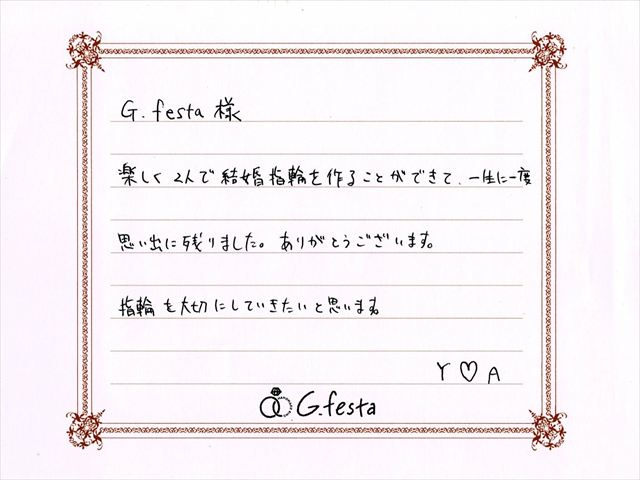 G.festa 様
楽しく2人で結婚指輪を作ることができて、一生に一度
思い出に残りました。ありがとうございます。
指輪を大切にしていきたいと思います。
Y♡A
G.festa